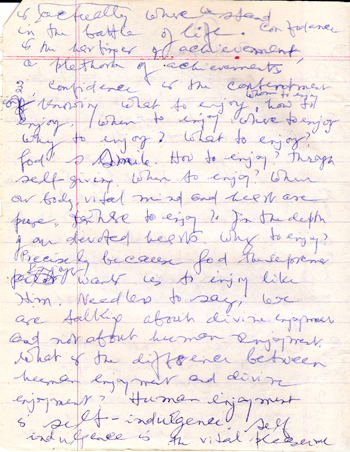 is actually where we stand
in the battle of life. Confidence
is the harbinger of achievement,
a plethora of achievements
22
Confidence is the contentment
of knowing what to enjoy, how to
enjoy, when to enjoy where to enjoy
why to enjoy? What to enjoy?
God's Smile. How to enjoy? Through
self-giving. When to enjoy? When
our body vital mind and heart are
pure. Where to enjoy? In the depth
of our devoted hearts. Why to enjoy?
Precisely because God the supreme
wants us to enjoy like
Him. Needless to say, we
are talking about divine enjoyment
and not about human enjoyment
what is the difference between
human enjoyment and divine
enjoyment? Human enjoyment
is self-indulgence; self
indulgence is the vital pleasure